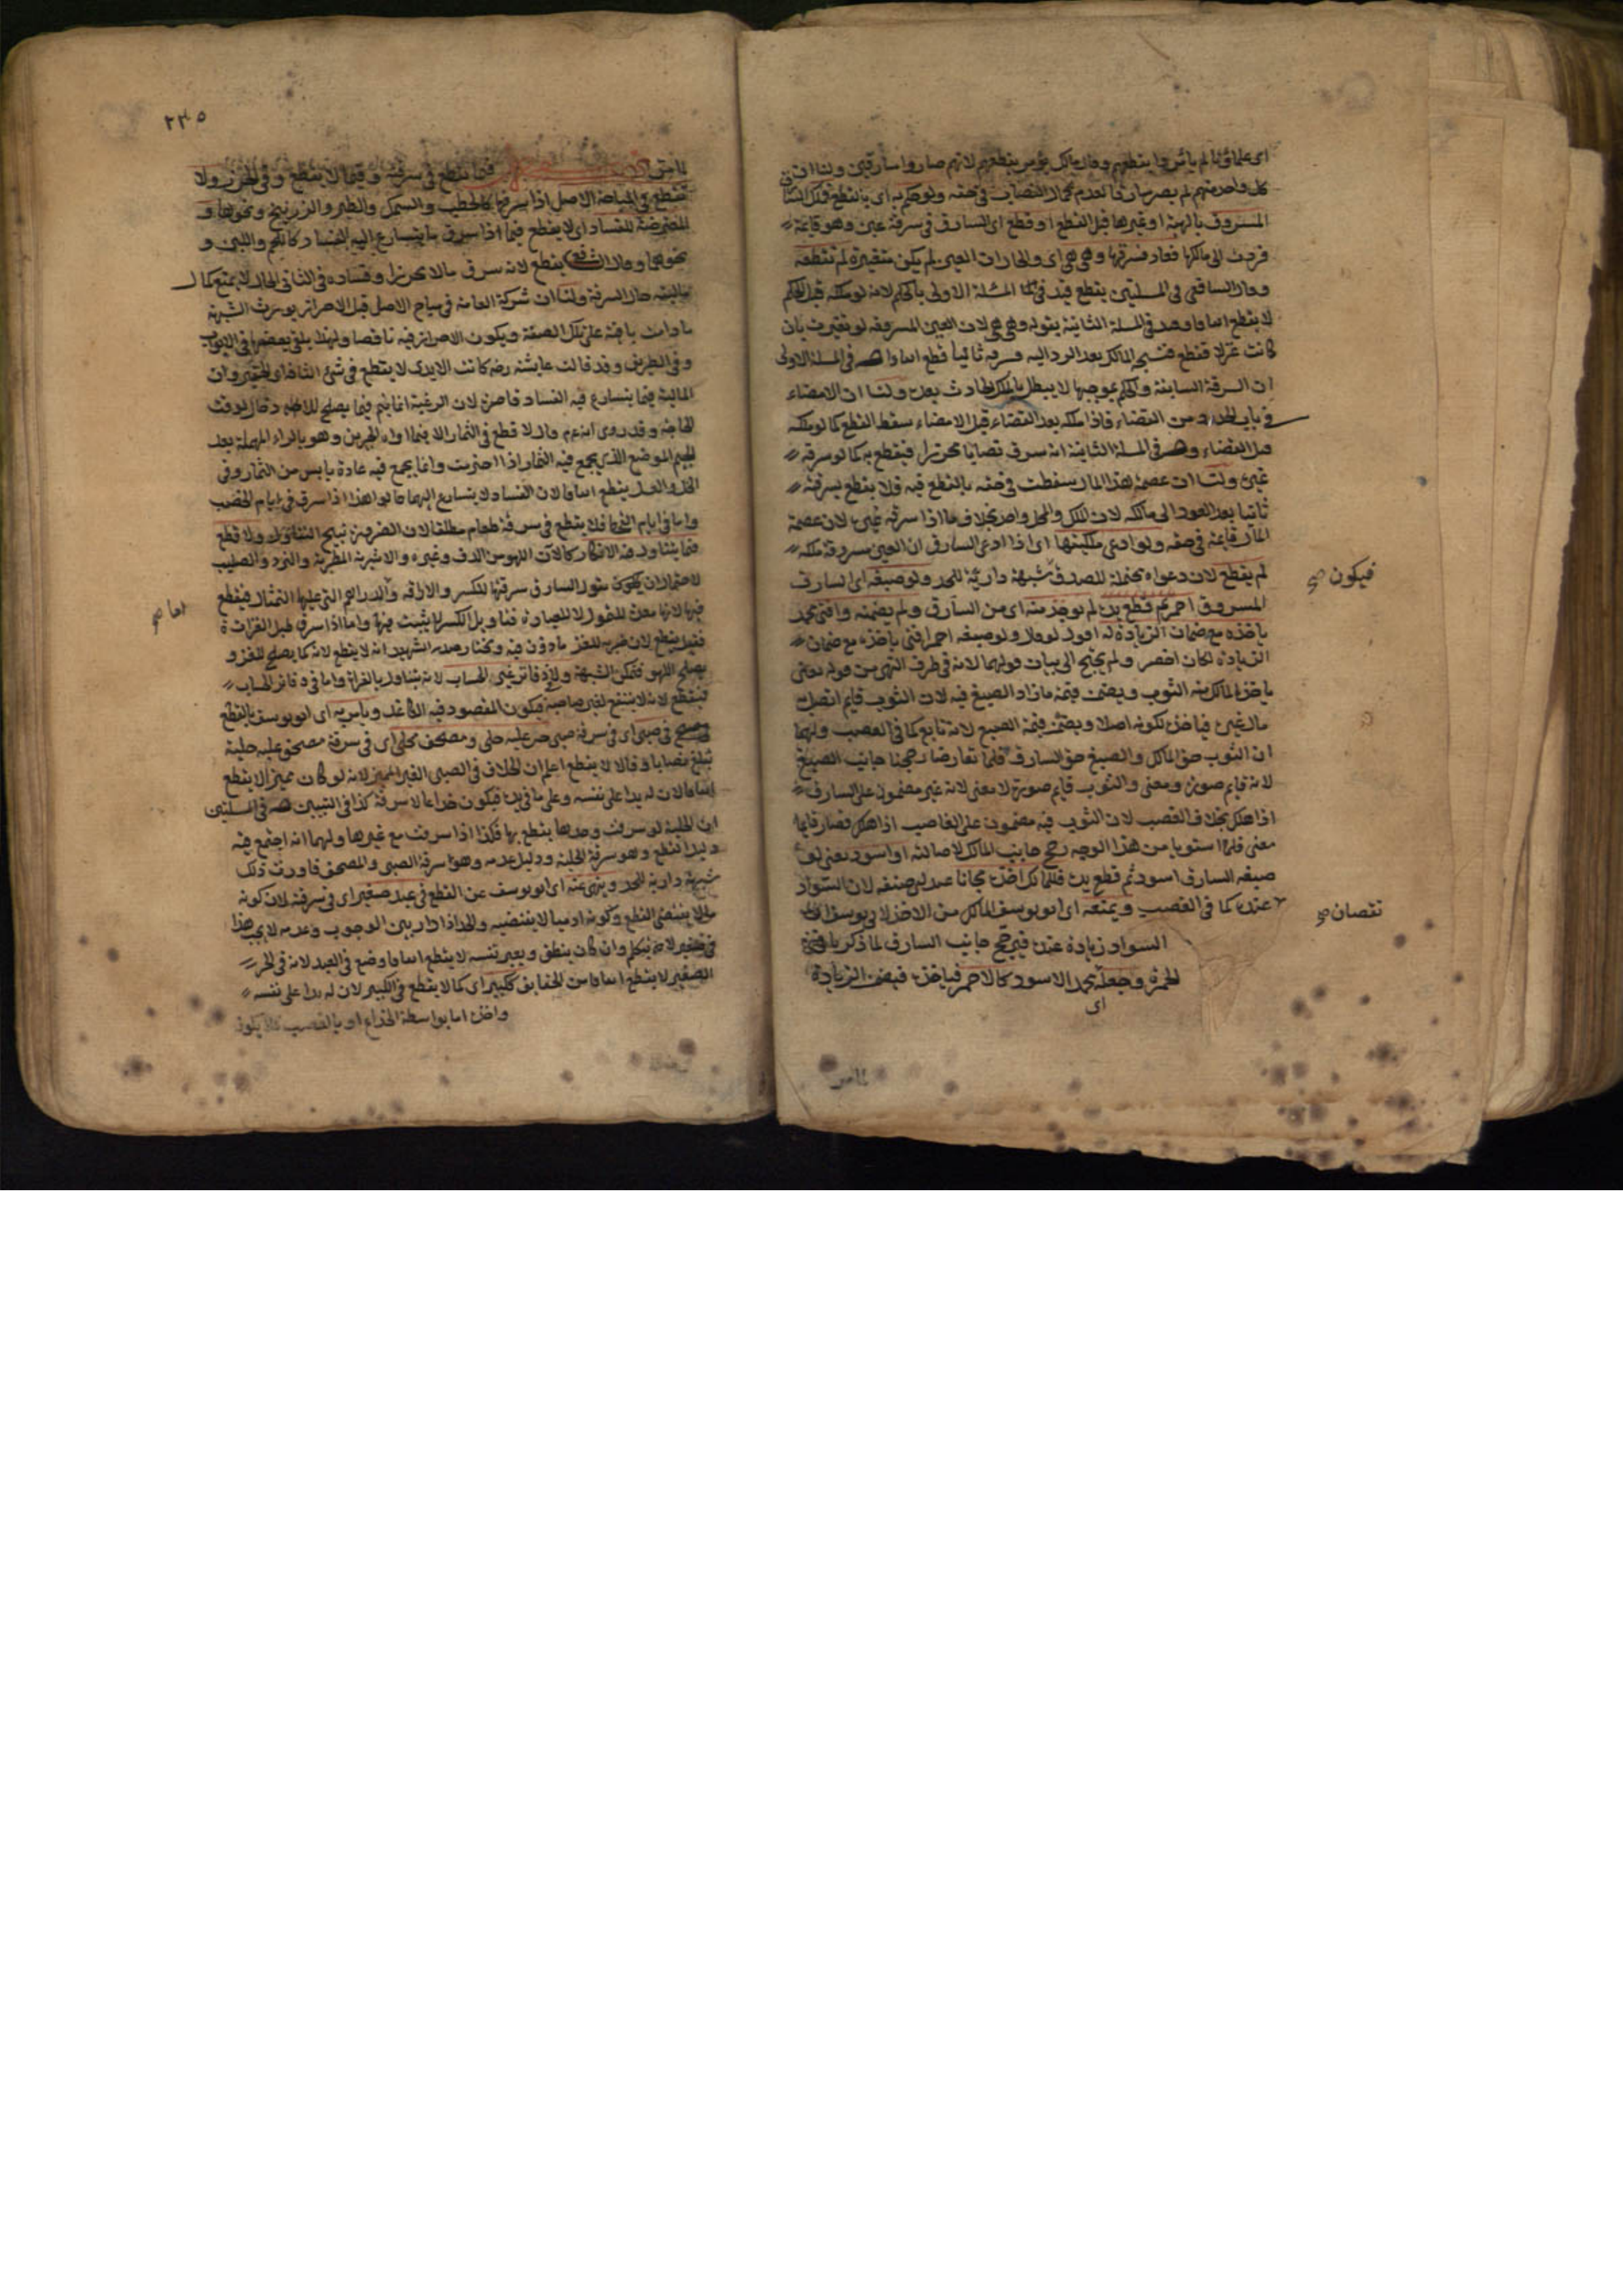 كل واحد منهم لم يصر سارقا لعدم كمال النصاب في حقه ولو حكم به اى بالقطع فملك
المسروق بالهبة او غيرها قبل القطع او قطع اى السارق في سرقة عين وهو قائمة
فردت الى مالكها فعاد فسرقها وهى هى اى والحال ان العين لم يكن متغيرة لم تقطعه
وقال الشافعى فى المسلتين يقطع قيد فى المسئلة الاولى بالحكم لانه لو ملكه قبل الحكم
لا يقطع اتفاقا وقيد فى المسئلة الثانية بقوله وهى هى لان العين المسروقة لو تغيرت بان
كانت غزلا فقطع فنسجه المالك بعد الرد اليه فسرقه ثانيا قطع اتفاقا له فى المسئلة الاولى
ان السرقة السابقة والحكم بموجبها لا يبطل بالملك الحادث بعده ولنا ان الامضاء
فى باب الحدود من القضاء فاذا ملكه بعد القضاء قبل الامضاء سقط القطع كما لو ملكه
قبل القضاء وله فى المسئلة الثانية انه سرق نصابا محرزا فيقطع به كما لو سرقه
غيره ولنا ان عصمة هذا المال سقطت فى حقه بالقطع فيه فلا يقطع بسرقته
ثانيا بعد العود الى مالكه لان الملك والمحل واحد بخلاف ما اذا سرقه غيره لان عصمة
المال قايمة فى حقه ولو ادعى ملكيتها اى اذا ادعى السارق ان العين مسروقة ملكه
لم يقطع لان دعواه محتملة للصدق شبهة دارئة للحد ولو صبغه اى السارق
المسروق احمر ثم قطع يده لم يوخذ منه اى من السارق ولم يضمنه وافتى محمد
باخذه مع ضمان الزيادة له اقول لو قال ولو صبغه احمر افتى باخذه مع ضمان
الزيادة لكان اخصر ولم يحتج الى بيان قولهما لانه فى طرف النفى من قوله يعنى
ياخذ المالك منه الثوب ويضمن قيمة ما زاد الصبغ فيه لان الثوب قايم اتصل
مال غيره فياخذه لكونه اصلا ويضمن قيمة الصبغ لانه تابع كما فى الغصب ولهما
ان الثوب حق المالك والصبغ حق السارق فلما تعارضا رجحنا جانب الصبغ
لانه قايم صورة ومعنى والثوب قايم صورة لا معنى لانه غير مضمون على السارق
اذا هلك بخلاف الغصب لان الثوب فيه مضمون على الغاصب اذا هلك فصار قايما
معنى فلما استويا من هذا الوجه رجح جانب المالك لاصالته او اسود يعنى لو
صبغه السارق اسود ثم قطع يده فللمالك اخذه مجانا عند ابى حنيفه لان السواد
عنده كما فى الغصب ويمنعه اى ابو يوسف المالك من الاخذ لابى يوسف ان
السواد زيادة عنده فيرجح جانب السارق لما ذكرنا فى
الحمرة وجعله محمد الاسود كالاحمر فياخذه فيضمن الزيادة
اى
فيكون صح
نقصان صح
المامتن
٢٣٥
فيما يقطع فى سرقته وفيما لا يقطع وفى الحرز ولا
نقطع فى المباحة الاصل اذا سرقها كالحطب والسمك والطير والزرنيخ ونحوها و
المتعرضة للفساد اى لا يقطع فيما اذا سرق ما يتسارع اليه الفساد كاللحم واللبن و
نحوهما وقال الشافعى يقطع لانه سرق مالا محرزا وفساده فى الثانى الحال لا يمنع كمال
ماليته حال السرقة ولنا ان شركة العامة فى مباح الاصل قبل الاحراز يورث الشبهة
ما دامت باقية على تلك الصفة ويكون الاحراز فيه ناقصا ولهذا يلقى بعضها فى الابواب
وفى الطريق وقد قالت عايشة رضه كانت الايدى لا يقطع فى شئ التافه اى الحقير وان
المالية فيما يتسارع فيه الفساد قاصرة لان الرغبة انما يتم فيما يصلح للادخار لوقت
الحاجة وقد روى انه عم قال لا قطع فى الثمار الا فيما اواه الجرين وهو بالراء المهملة بعد
الجيم الموضع الذى يجمع فيه الثمار اذا اجتزيت وانما يجمع فيه عادة يابس من الثمار وفى
الخل والعسل يقطع اتفاقا لان الفساد لا يتسارع اليهما قالوا هذا اذا سرق فى ايام الخصب
واما فى ايام القحط فلا يقطع فى سرقة طعام مطلقا لان الضرورة تبيح التناول ولا قطع
فيما يتناول فيه الانكار كالات اللهو من الدف وغيره والاشربة المطربة والنرد والصليب
لاحتمال ان يكون متاول السارق سرقتها للكسر والاراقة والدراهم التى عليها التمثال فيقطع
فيها لانها معدة للتمول لا للعبادة فتاويل الكسر لا يثبت فيها واما اذا سرق طبل الغزاة
فقيل يقطع لان ضربه للغزو ماذون فيه ومختار صدر الشهيد انه لا يقطع لانه كما يصلح للغزو
يصلح اللهو فتمكن الشبهة ولا دفاتر غير الحساب لانه يتناول بالقراة واما فى دفاتر الحساب
فيقطع لانه لا ينتفع لغير صاحبه فيكون المقصود فيه الكاغد ويامر به اى ابو يوسف بالقطع
فى صبى اى فى سرقة صبى حر عليه حلى ومصحف محلى اى فى سرقة مصحف عليه حلية
تبلغ نصابا وقالا لا يقطع اعلم ان الخلاف فى الصبى الغير المميز لانه لو كان مميزا لا يقطع
اتفاقا لان له يدا على نفسه وعلى ما فى يده فيكون خداعا لا سرقة كذا فى التبيين له فى المسلتين
ان الحلية لو سرقت وحدها يقطع بها فكذا اذا سرقت مع غيرها ولهما انه اجتمع فيه
دليل القطع وهو سرقة الحلية ودليل عدمه وهو سرقة الصبى والمصحف فاورث ذلك
شبهة دارية للحد وينهى عنه اى ابو يوسف عن القطع فى عبد صغير اى فى سرقته لان كونه
مالا يقتضى القطع وكونه ادميا لا يقتضيه والحد اذا دار بين الوجوب وعدمه لا يجب هذا
فى صغير لا يتكلم وان كان ينطق ويعبر نفسه لا يقطع اتفاقا وضع فى العبد لانه فى الحر
الصغير لا يقطع اتفاقا من الحقايق ككبير اى كما لا يقطع فى الكبير لان له يدا على نفسه
واخذه اما بواسطة الخداع او بالغصب فلا يكون
اما صح